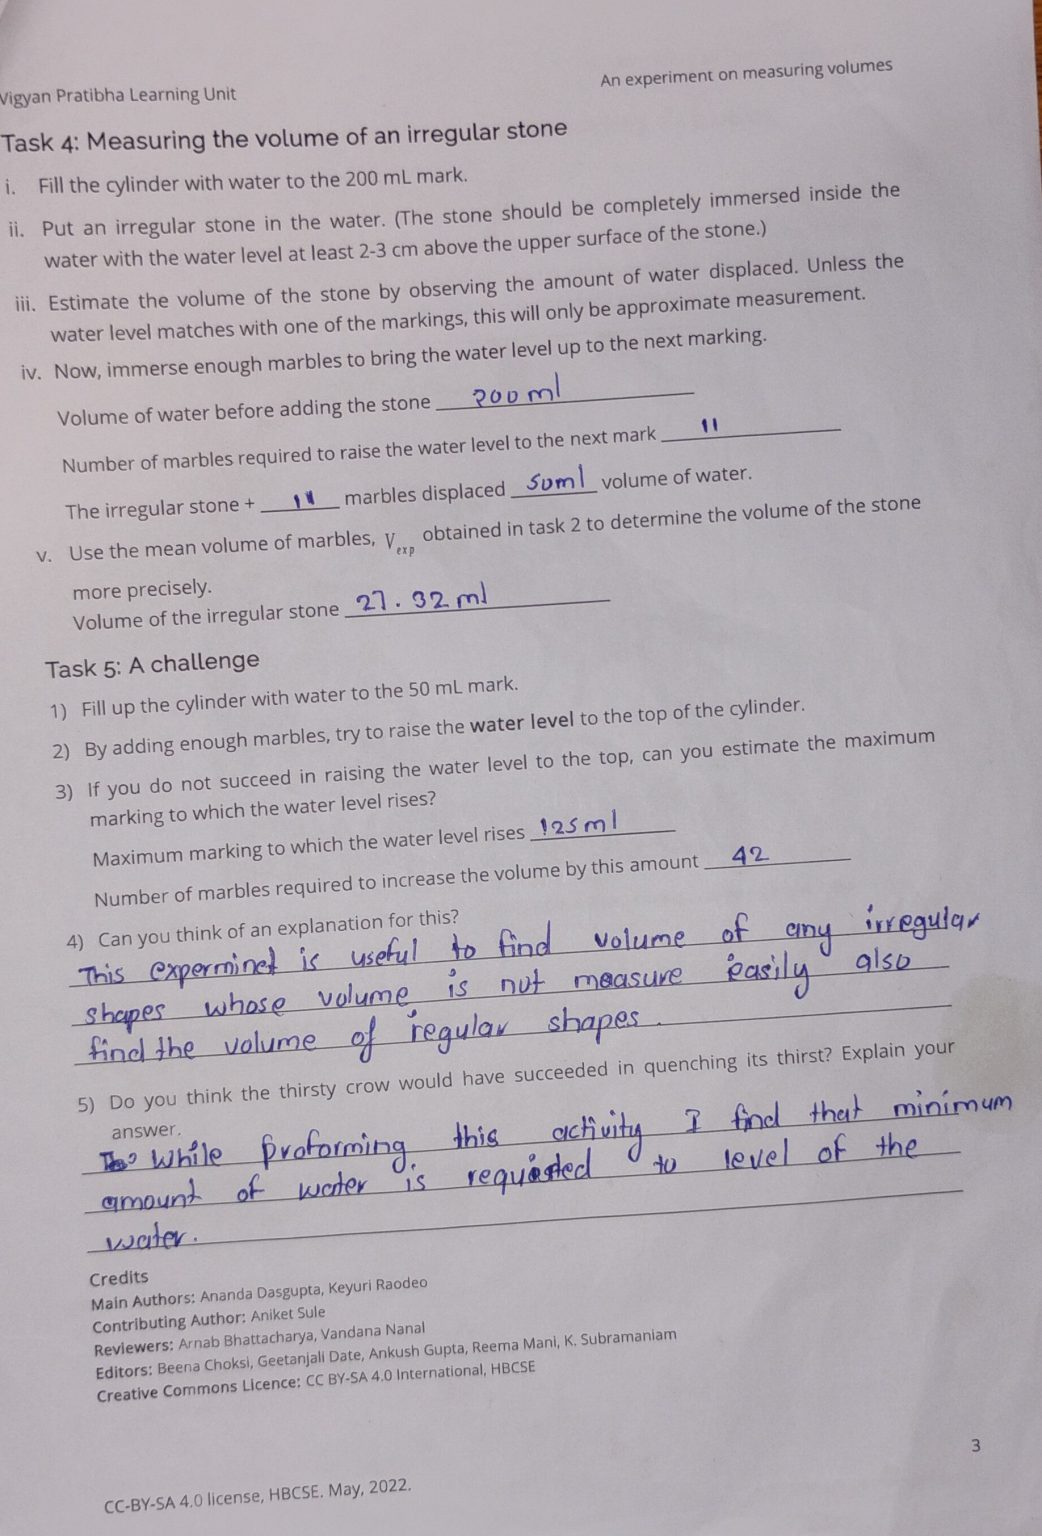 Vigyan Pratibha Learning Unit
An experiment on measuring volumes
Task 4: Measuring the volume of an irregular stone
i. Fill the cylinder with water to the 200 mL mark.
ii. Put an irregular stone in the water. (The stone should be completely immersed inside the
water with the water level at least 2-3 cm above the upper surface of the stone.)
iii. Estimate the volume of the stone by observing the amount of water displaced. Unless the
water level matches with one of the markings, this will only be approximate measurement.
iv. Now, immerse enough marbles to bring the water level up to the next marking.
Volume of water before adding the stone 200 ml
Number of marbles required to raise the water level to the next mark 11
The irregular stone + 11 marbles displaced 50ml volume of water.
v. Use the mean volume of marbles, V exp obtained in task 2 to determine the volume of the stone
more precisely.
Volume of the irregular stone 27.32 ml
Task 5: A challenge
1) Fill up the cylinder with water to the 50 mL mark.
2) By adding enough marbles, try to raise the water level to the top of the cylinder.
3) If you do not succeed in raising the water level to the top, can you estimate the maximum
marking to which the water level rises?
Maximum marking to which the water level rises 125 ml
Number of marbles required to increase the volume by this amount 42
4) Can you think of an explanation for this?
This experminet is useful to find volume of any irregular
shapes whose volume is not measure easily also
find the volume of regular shapes.
5) Do you think the thirsty crow would have succeeded in quenching its thirst? Explain your
answer.
While proforming this activity I find that minimum
amount of water is requested to level of the
water.
Credits
Main Authors: Ananda Dasgupta, Keyuri Raodeo
Contributing Author: Aniket Sule
Reviewers: Arnab Bhattacharya, Vandana Nanal
Editors: Beena Choksi, Geetanjali Date, Ankush Gupta, Reema Mani, K. Subramaniam
Creative Commons Licence: CC BY-SA 4.0 International, HBCSE
3
CC-BY-SA 4.0 license, HBCSE. May, 2022.